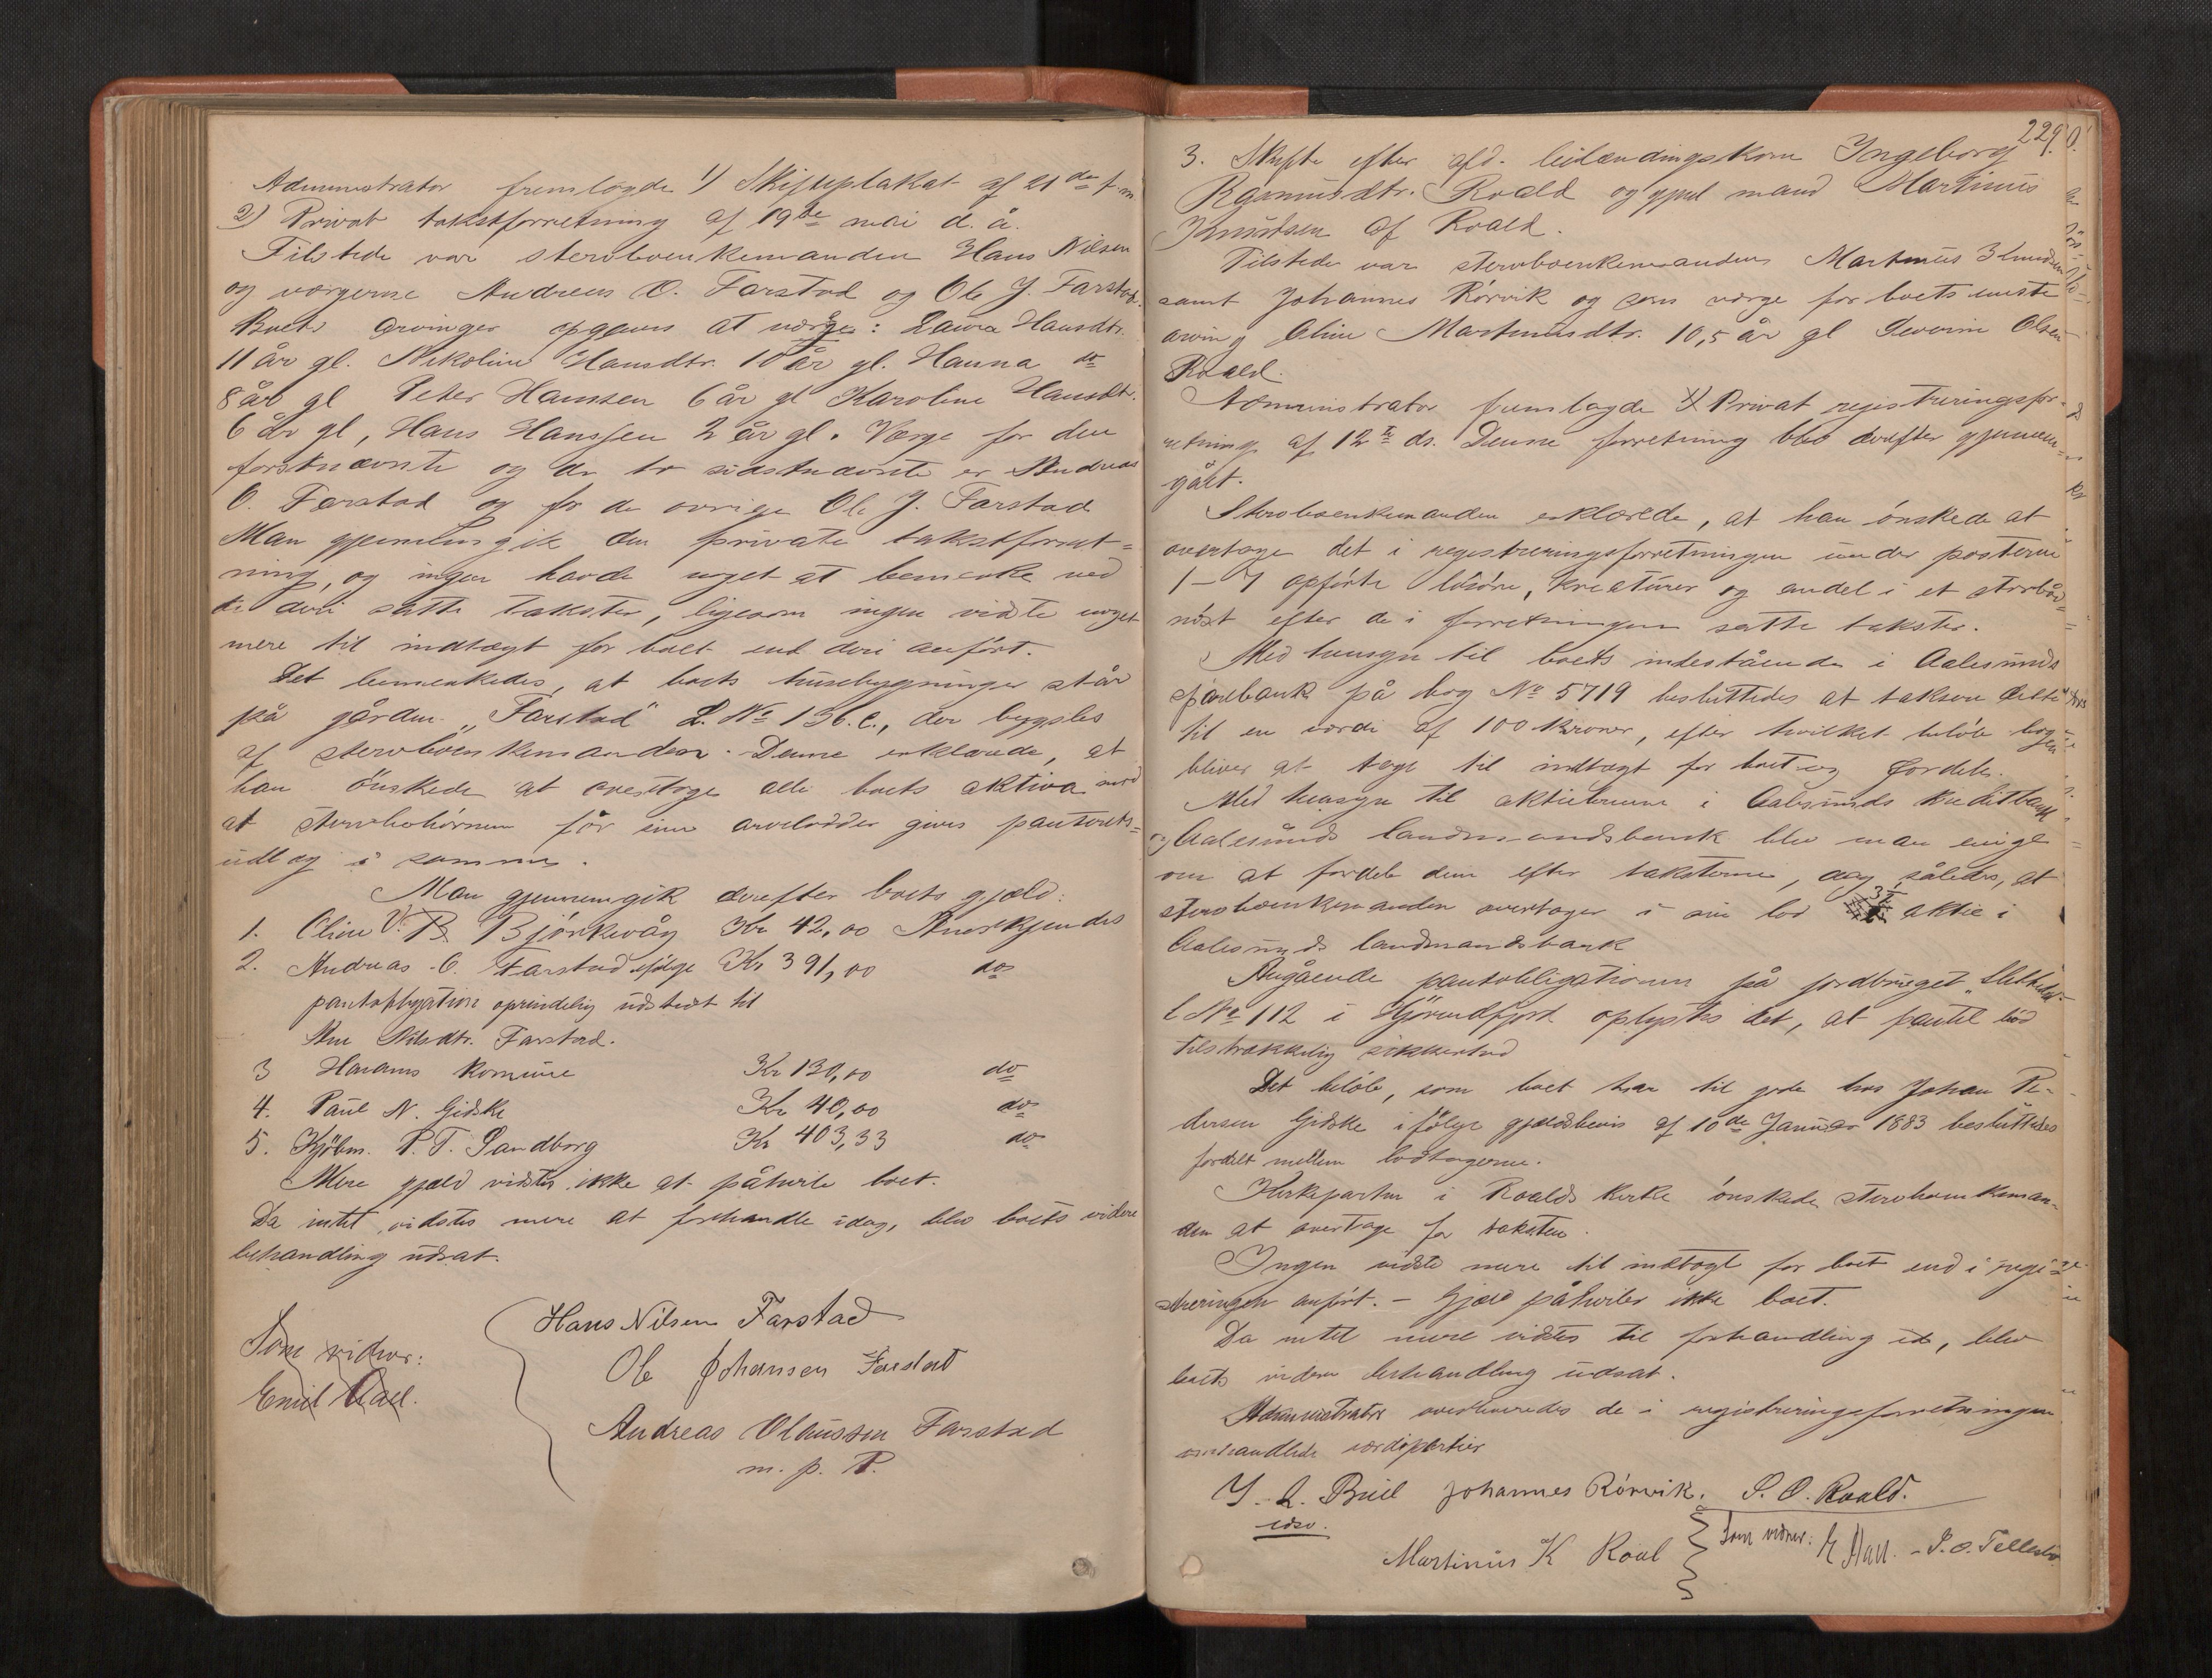 Administrator fremlagde 1) Skifteplakat af 21de f.m.
2) Privat takstforretning af 19de mai d. å.
Tilstede var sterboenkemanden Hans Nilsen
og værgerne Andreas O. Farstad og Ole J. Farstad.
Boets arvinger opgaves at være: Laura Hansdtr.
11 år gl. Nikoline Hansdtr. 10 år gl. Hanna do
8 år gl Peter Hanssen 6 år gl Karoline Hansdtr.
6 år gl, Hans Hanssen 2 år gl. Værge for den
førstnævnte og de to sidstnævnte er Andreas
O. Farstad og for de øvrige Ole J. Farstad
Man gjennemgik den private takstforret=
ning, og ingen havde noget at bemerke ved
de deri satte takster, ligesom ingen vidste noget
mere til indtægt for boet end deri anført.
Det bemerkedes, at boets husebygninger står
på gården "Farstad" L. No 136.c., der bygsles
af sterboenkemanden. Denne erklærede, at
han ønskede at overtage alle boets aktiva mod
at sterbobørnene får sine arvelodder givet panterets=
udlæg i samme.
Man gjennemgik derefter boets gjæld:
1. Oline V. Bjørkevåg Kr 42,00 Anerkjendes
2. Andreas O. Farstad ifølge Kr 391,00 do
pantobligation oprindelig udstedt til
Ane Nilsdtr. Farstad.
3 Harams kommune Kr 130,00 do
4. Paul N. Gidske Kr 40,00 do
5. Kjøbm. P. T. Sandborg Kr 403,33 do
Mere gjæld vidstes ikke at påhvile boet.
Da intet vidstes mere at forhandle idag, blev boets videre
behandling udsat.
Hans Nilsen Farstad
Som vidner:
Ole Johansen Farstad
Emil
Andreas Olaussen Farstad
m. p. P.
229.
3. Skifte efter afd. leilændingskone Ingeborg
Rasmusdtr. Roald og gjenl mand Martinus
Knudsen af Roald.
Tilstede var sterboenkemanden Martinus Knudsen
samt Johannes Rørvik og som værge for boets eneste
arving Oline Martinusdtr. 10,5 år gl Severin Olsen
Roald.
Administrator fremlagde 1) Privat registreringsfor=
retning af 12te ds. Denne forretning blev derefter gjennem=
gået.
Sterboenkemanden erklærede, at han ønskede at
overtage det i registreringsforretningen under posterne
1-7 opførte løsøre, kreaturer og andel i et storbåd=
nøst efter de i forretningen satte takster.
Med hensyn til boets indestående i Aalesunds
sparebank på bog No 5719 besluttedes at taksere dette
til en værdi af 100 kroner, efter hvilket beløb bogen
bliver at tage til indtægt for boet og fordeles.
Med hensyn til aktiebrevene i Aalesunds kreditbank
og Aalesunds landmandsbank blev man enige
om at fordele dem efter taksterne, dog således, at
sterboenkemanden overtager i sin lod aktie i
Aalesunds landmandsbank
Angående pantobligationen på jordbruget
L No 112 i Hjørundfjord oplystes det, at pantet bød
tilstrækkelig sikkerhed
Det beløb, som boet har til gode hos Johan Pe-
dersen Gidske ifølge gjældsbevis af 10de Januar 1883 besluttedes
fordelt mellem lodtagerne.
Kirkeparten i Roalds kirke ønskede sterboenkeman-
den at overtage for taksten.
Ingen vidste mere til indtægt for boet end i regi=
streringen anført. - Gjæld påhviler ikke boet.
Da intet mere vidstes til forhandling id, blev
boets videre behandling udsat.
Administrator overleveredes de i registreringsforretningen
omhandlede værdipapirer
Johannes Rørvik. S. O. Roald.
Martinus K Roal
Som vidner: